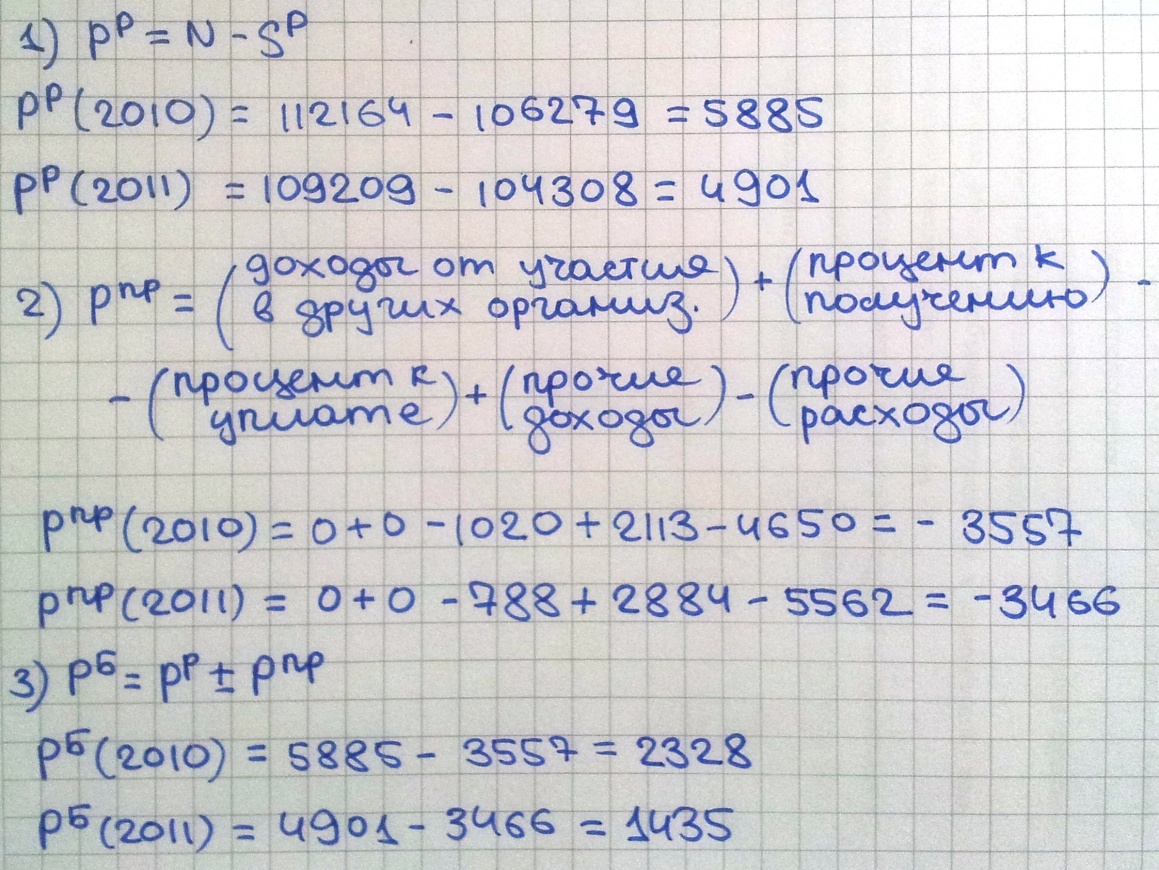 1) Pᴾ = N - Sᴾ
Pᴾ(2010) = 112164 - 106279 = 5885
Pᴾ(2011) = 109209 - 104308 = 4901
2) Pᵖᴾ = (доходы от участия в других организ.) + (процент к получению) -
- (процент к уплате) + (прочие доходы) - (прочие расходы)
Pᵖᴾ(2010) = 0 + 0 - 1020 + 2113 - 4650 = - 3557
Pᵖᴾ(2011) = 0 + 0 - 788 + 2884 - 5562 = - 3466
3) Pᴮ = Pᴾ ± Pᵖᴾ
Pᴮ(2010) = 5885 - 3557 = 2328
Pᴮ(2011) = 4901 - 3466 = 1435